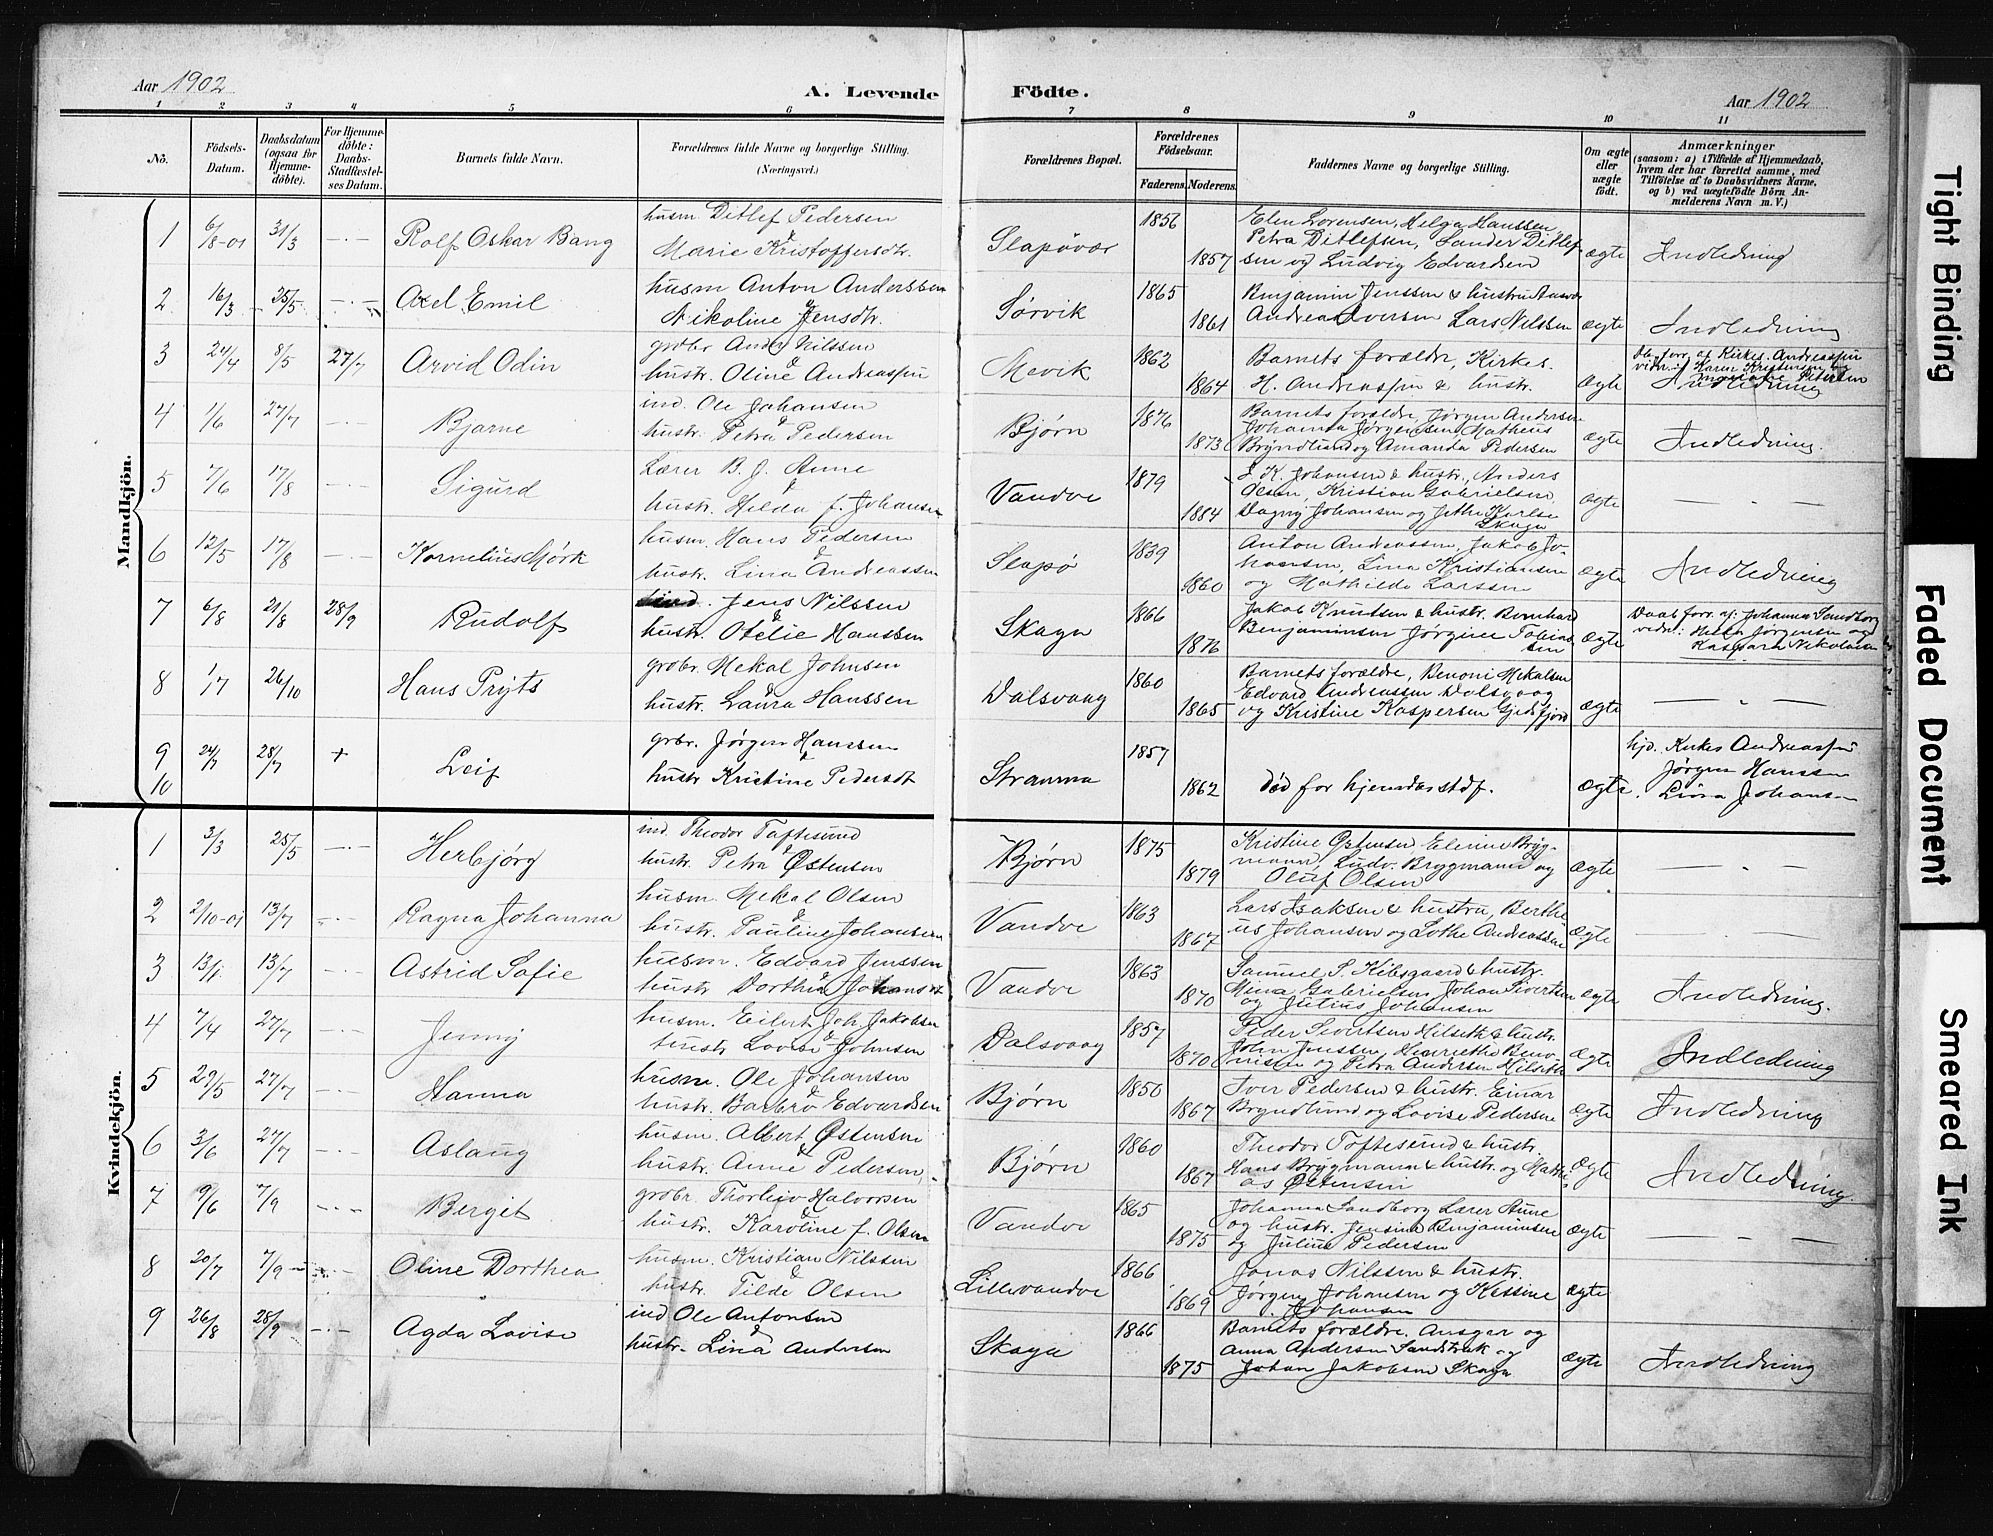 Aar 1902
A. Levende Födte.
Aar 1902
1 2 3 4 5 6 7 8 9 10 11
No.
Födsels-Datum.
Daabsdatum (ogsaa for Hjemme-döbte).
For Hjemme-döbte: Daabs-Stadfæstel-ses Datum.
Barnets fulde Navn.
Forældrenes fulde Navne og borgerlige Stilling.
(Næringsvei.)
Forældrenes Bopæl.
Forældrenes Födselsaar.
Faderens. Moderens.
Faddernes Navne og borgerlige Stilling.
Om ægte eller uægte födt.
Anmærkninger
(saasom: a) i Tilfælde af Hjemmedaab,
hvem der har forrettet samme, med
Tilföielse af to Daabsvidners Navne,
og b) ved uægtefödte Börn An-
melderens Navn m. V.)
Mandkjön.
1 6/8-01 31/3 -.- Rolf Oskar Bang
husm Ditlef Pedersen
& Marie Kristoffersdtr.
Slapøvær 1856 1857
Elen Lorensen, Helga Hanssen,
Petra Ditlefsen, Sander Ditlef
sen og Ludvig Edvardsen
ægte Indledning
2 16/3 25/5 -.- Axel Emil
husm Anton Anderssen
& Nikoline Jensdtr.
Sørvik 1865 1861
Benjamin Jenssen & hustru
Andrea Iversen Lars Nilssen
ægte Indledning
3 24/4 8/5 27/7 Arvid Odin
grdbr Anders Nilssen
& hustr. Oline Andreassen
Mevik 1862 1864
Barnets forældre, Kirkes.
H. Andreassen & hustr.
Ægte
Db. forr. af Kirkes. Andreassen
vidn.: Karen Kristensen og
Petersen
Indledning
4 1/6 27/7 -.- Bjarne
ind. Ole Johansen
& hustr. Petra Pedersen
Bjørn 1876 1873
Barnets forældre, Jørgen Andersen
Johanna Jørgensen, Matheus
Bryndlund og Amanda Pedersen
ægte Indledning.
5 7/6 17/8 -.- Sigurd
Lærer B. J. Aune
& hustr. Hilda f. Johansen
Vandve 1879 1884
J. K. Johansen & hustr., Anders
Olsen, Kristian Gabrielsen
Dagny Johansen og Karlse
Skaga
ægte - . -
6 12/5 17/8 -.- Kornelius Mørk
husm. Hans Pedersen
& hustr. Lina Andreassen
Slapø 1839 1860
Anton Andreassen, Jakob Jo-
hansen, Lina Kristiansen
og Mathilde Larssen
ægte Indledning
7 6/8 21/8 28/9 Rudolf
ind. Jens Nilssen
& hustr. Otelie Hanssen
Skaga 1866 1876
Jakob Knutsen & hustr. Bernhard
Benjaminsen Jørgine Tobias
sen
ægte
Daab forr. af: Johanna Sandborg
vidn.: Jørgensen og
Kaspara Nikolaisen
8 1/7 26/10 Hans Prÿts
grdbr. Mekal Johnsen
& hustr. Laura Hanssen
Dalsvaag 1860 1865
Barnets forældre, Benoni Mekalsen
Edvard Andreassen Dalsvaag
og Kristine Kaspersen
ægte - . -
9 24/7 28/7 + Leif
grbr. Jørgen Hanssen
& hustr Kristine Pedersdt
Stranna 1857 1862
Død før hjemdøb stdf.
ægte.
hjd. Kirkes Andreassen
Jørgen Hanssen
Lina Johansen
10
Kvindekjön.
1 3/3 25/5 -.- Herbjørg
ind. Theodor Toftesund
& hustr. Petra Østensen
Bjørn 1875 1879
Kristine Østensen Elenine Bryg-
mann, Ludv. Bryggmann og
Oluf Olsen
ægte - . -
2 2/10-01 13/7 -.- Ragna Johanna
husm. Mekal Olsen
& hustr. Pauline Johansen
Vandve 1863 1867
Lars Isaksen & hustru, Berthe
us Johansen og Lothe Andreassen
ægte - . -
3 13/1 13/7 -.- Astrid Sofie
husm. Edvard Jenssen
& hustr Dorthea Johansdt
Vandve 1863 1870
Samuel S. Kibsgaard & hustr.
Mina Gabrielsen, Johan Sivertsen
og Julius Johansen
ægte Indledning.
4 7/4 27/7 -.- Jenny
husm. Eilert Joh Jakobsen
& hustr Lovise Johnsen
Dalsvaag 1857 1870
Peder Sivertsen Hilseth & hustr.
John Jenssen, Henriette Beno-
nisen og Petra Andersen Hilseth
ægte Indledning
5 29/5 27/7 -.- Hanna
husm. Ole Johansen
& hustr. Barbro Edvardsen
Bjørn 1850 1867
Iver Pedersen & hustr. Einar
Bryndlund og Lovise Pedersen
ægte Indledning
6 3/6 27/7 -.- Aslaug
husm. Albert Østensen
& hustr. Anne Pedersen,
Bjørn 1860 1867
Theodor Toftesund & hustr.
Hans Bryggmann & hustr. og Mathi-
as Østensen
Ægte Indledning.
7 9/6 7/9 -.- Bergit
grdbr. Thorleiv Halvorsen
& hustr. Karoline f. Olsen
Vandve 1865 1875
Johanna Sandborg Lærer Aune
og hustr. Jensine Benjaminsen
og Julius Pedersen
ægte - - -
8 20/7 7/9 -.- Oline Dorthea
husm. Kristian Nilssen
& hustr. Tilde Olsen
Lillevandve 1866 1869
Jonas Nilssen & hustr.
Jørgen Johansen og Kessine
Johansen
ægte
9 26/8 28/9 -.- Agda Lovise
ind Ole Antonsen
& hustr. Lina Andersen
Skaga 1866 1875
Barnets forældre. Ansgar og
Anna Andersen Sandstrak og
Johan Jakobsen Skaga
ægte Indledning
Tight Binding
Faded Document
Smeared Ink